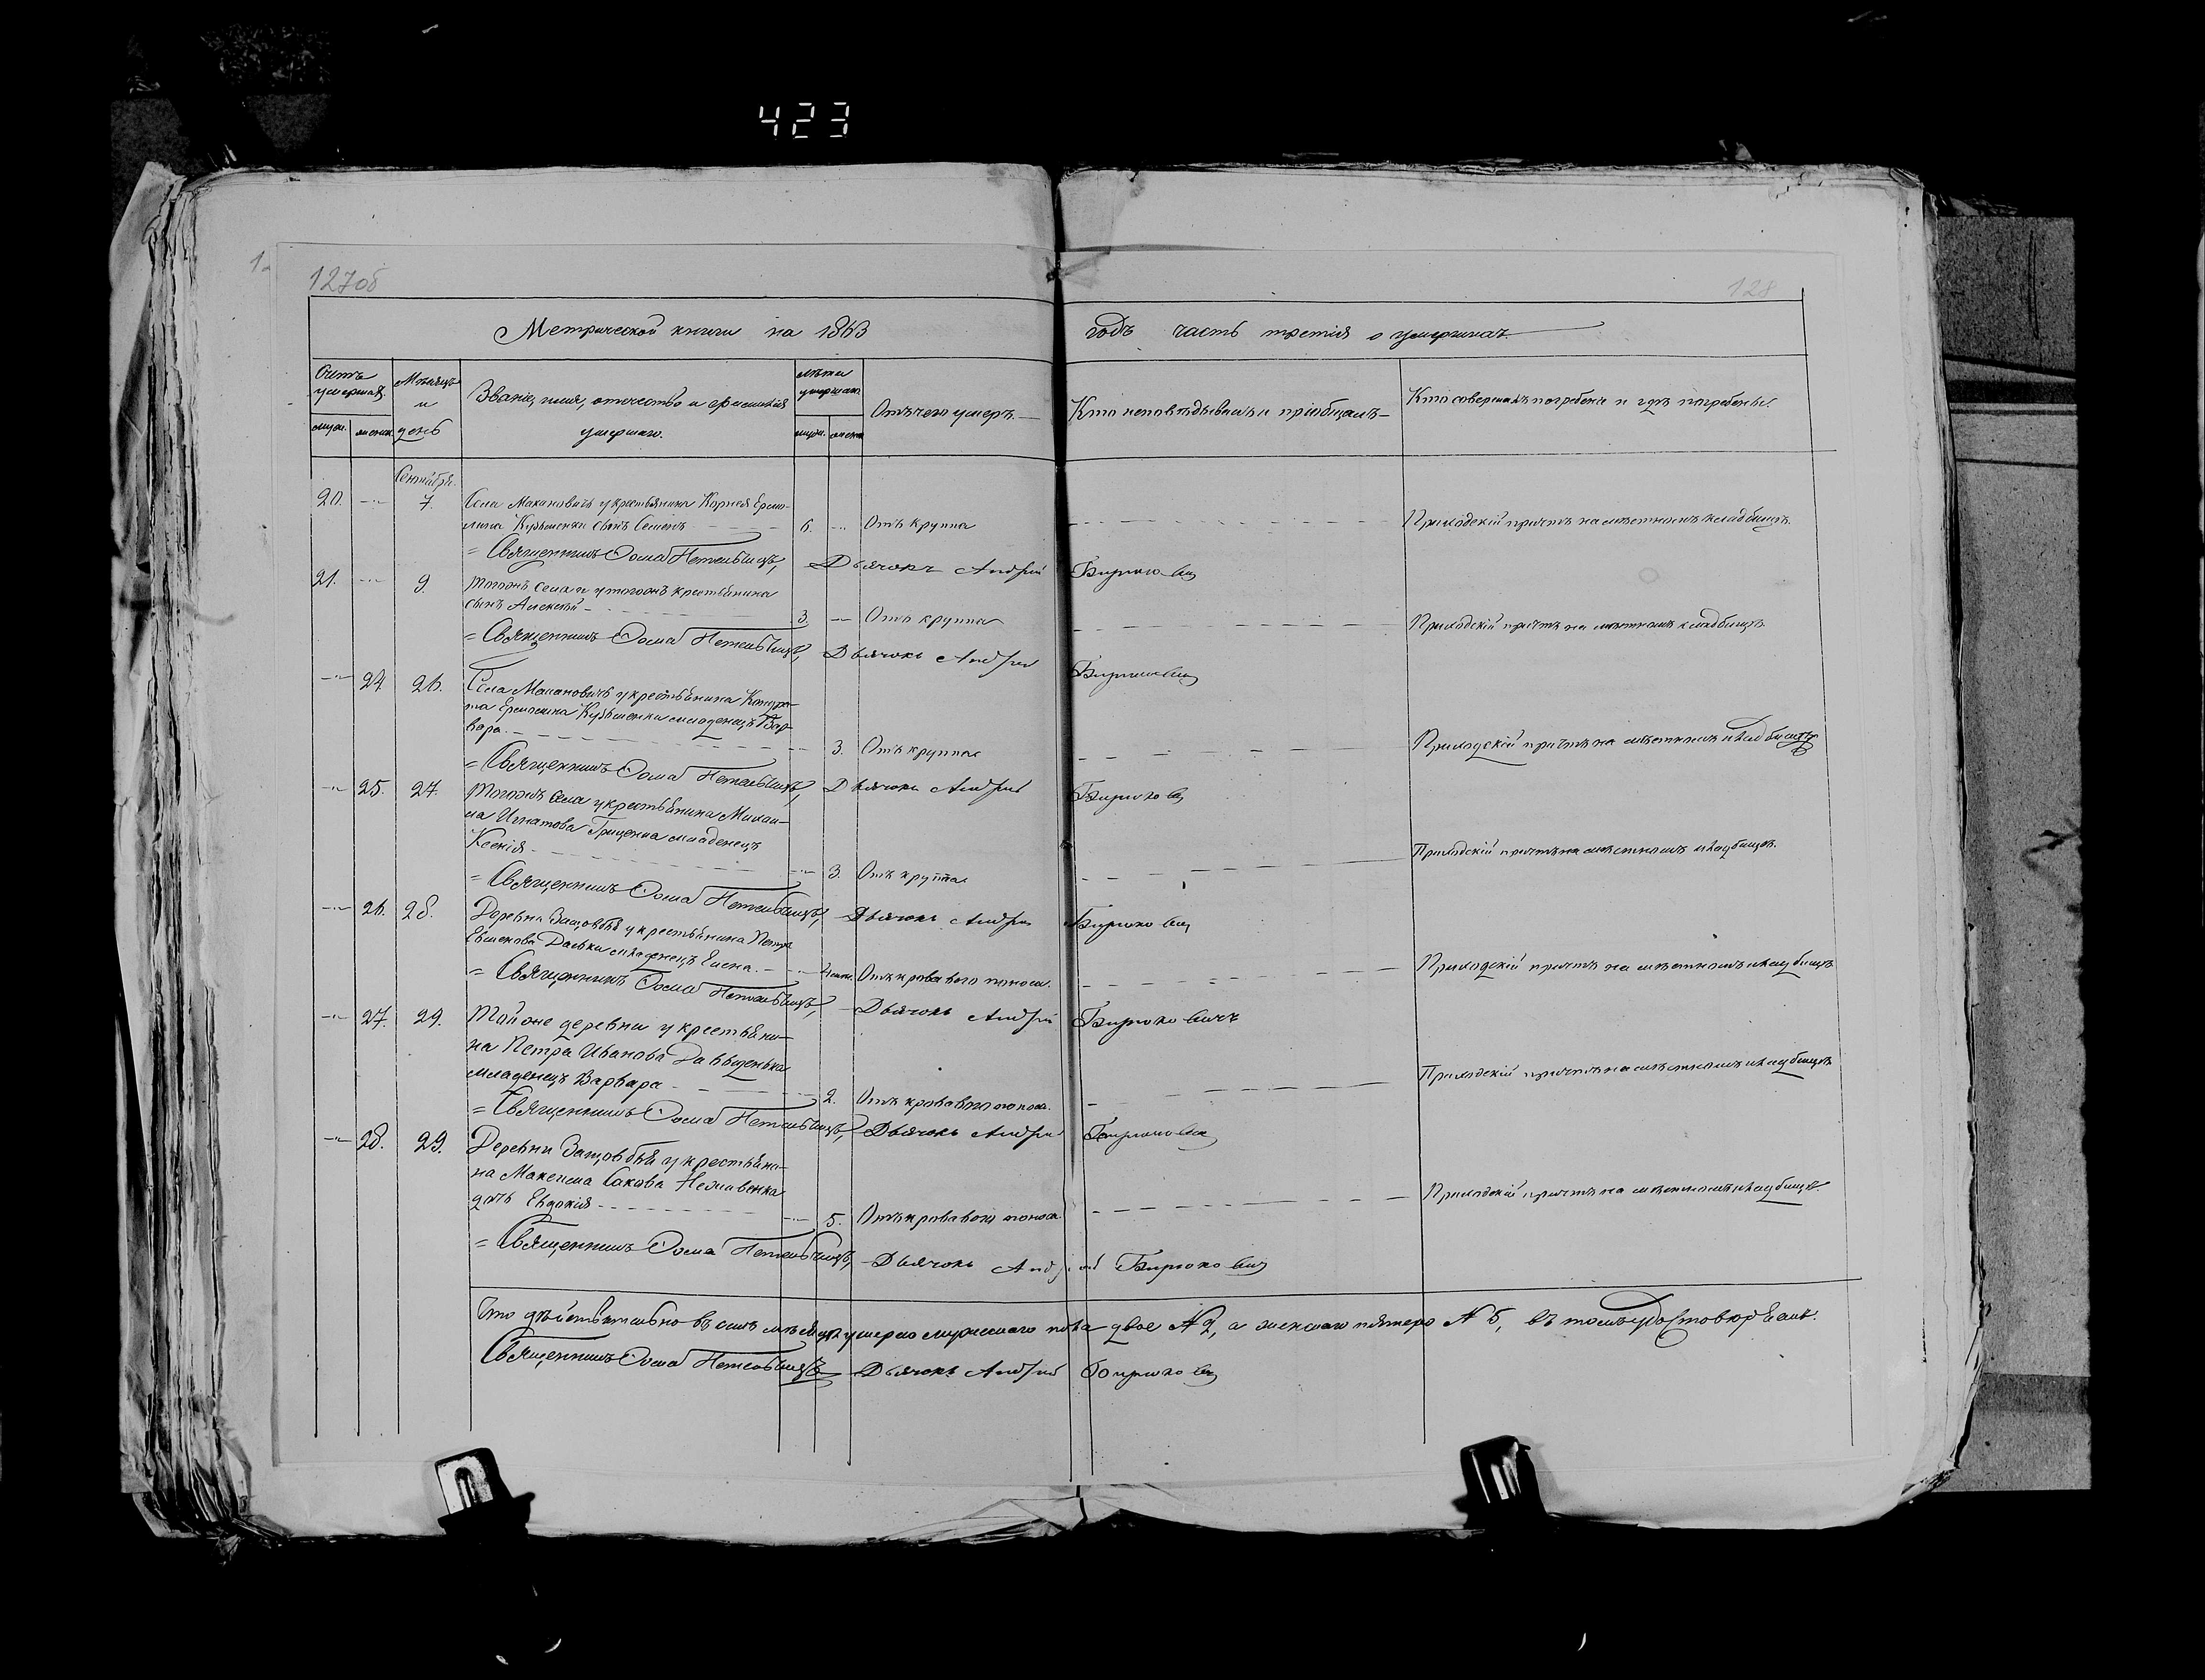 423
127об
128
Метрической книги на 1863
годъ часть третія о умершихъ.
Счетъ умершихъ.
муж.
женск.
Мѣсяцъ и день
Званіе, имя, отчество и фамилія
умершаго.
лѣта умершаго.
муж.
женск.
Отъ чего умеръ.
Кто исповѣдывалъ и пріобщалъ
Кто совершалъ погребеніе и гдѣ погребены.
Сентября.
20. 7. Села Макановичъ у крестьянина Корнея Ермо-
лина Кузьменки сынъ Семенъ 6. Отъ круппа
Приходскій причтъ на мѣстномъ кладбищѣ.
Священникъ Ѳома Дьячокъ Андрей Бирюкович
21. 9. Тогожъ села и у тогожъ крестьянина
сынъ Алексѣй 3. Отъ круппа
Приходскій причтъ на мѣстномъ кладбищѣ.
Священникъ Ѳома Дьячокъ Андрей Бирюкович
24 26. Села Макановичъ у крестьянина Кондра-
та Ермолина Кузьменки младенецъ Вар-
вара. 3. Отъ круппа
Приходскій причтъ на мѣстномъ кладбищѣ
Священникъ Ѳома Дьячокъ Андрей Бирюкович
25. 27. Тогожъ села у крестьянина Михаи-
ла Игнатова Гриценка младенецъ
Ксенія 3. Отъ круппа
Приходскій причтъ на мѣстномъ кладбищѣ.
Священникъ Ѳома Дьячокъ Андрей Бирюкович
26. 28. Деревни у крестьянина Петра
младенецъ Елена. Отъ кроваваго поноса.
Приходскій причтъ на мѣстномъ кладбищѣ
Священникъ Ѳома Дьячокъ Андрей Бирюковичъ
27. 29. Той оже деревни у крестьяни-
на Петра Иванова
младенецъ Варвара 2. Отъ кроваваго поноса.
Приходскій причтъ на мѣстномъ кладбищѣ
Священникъ Ѳома Дьячокъ Андрей Бирюкович
28. 29. Деревни у крестьяни-
на Максима Сакова
дочь Евдокія 5. Отъ кроваваго поноса.
Приходскій причтъ на мѣстномъ кладбищѣ.
Священникъ Ѳома Дьячокъ Андрей Бирюкович
Что дѣйствительно въ семъ мѣсяцѣ умерло мужескаго пола двое № 2, а женскаго пятеро № 5, въ томъ удостовѣряемъ.
Священникъ Ѳома Дьячокъ Андрей Бирюкович